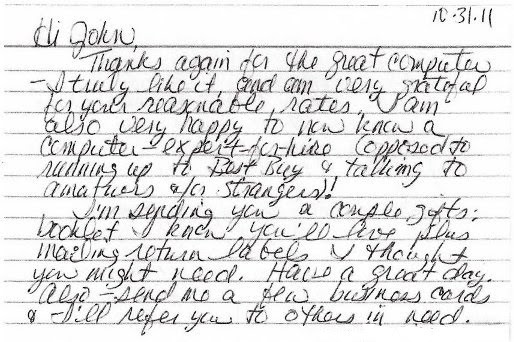 10.31.11
Hi John,
Thanks again for the great computer
- I truly like it, and am very grateful
for your reasonable rates. I am
also very happy to now know a
computer-expert-for-hire (opposed to
running up to Best Buy & talking to
amatuers &/or strangers)!
I'm sending you a couple gifts:
booklet I know you'll love plus
mailing return labels I thought
you might need. Have a great day.
Also - send me a few business cards
& - I'll refer you to others in need.